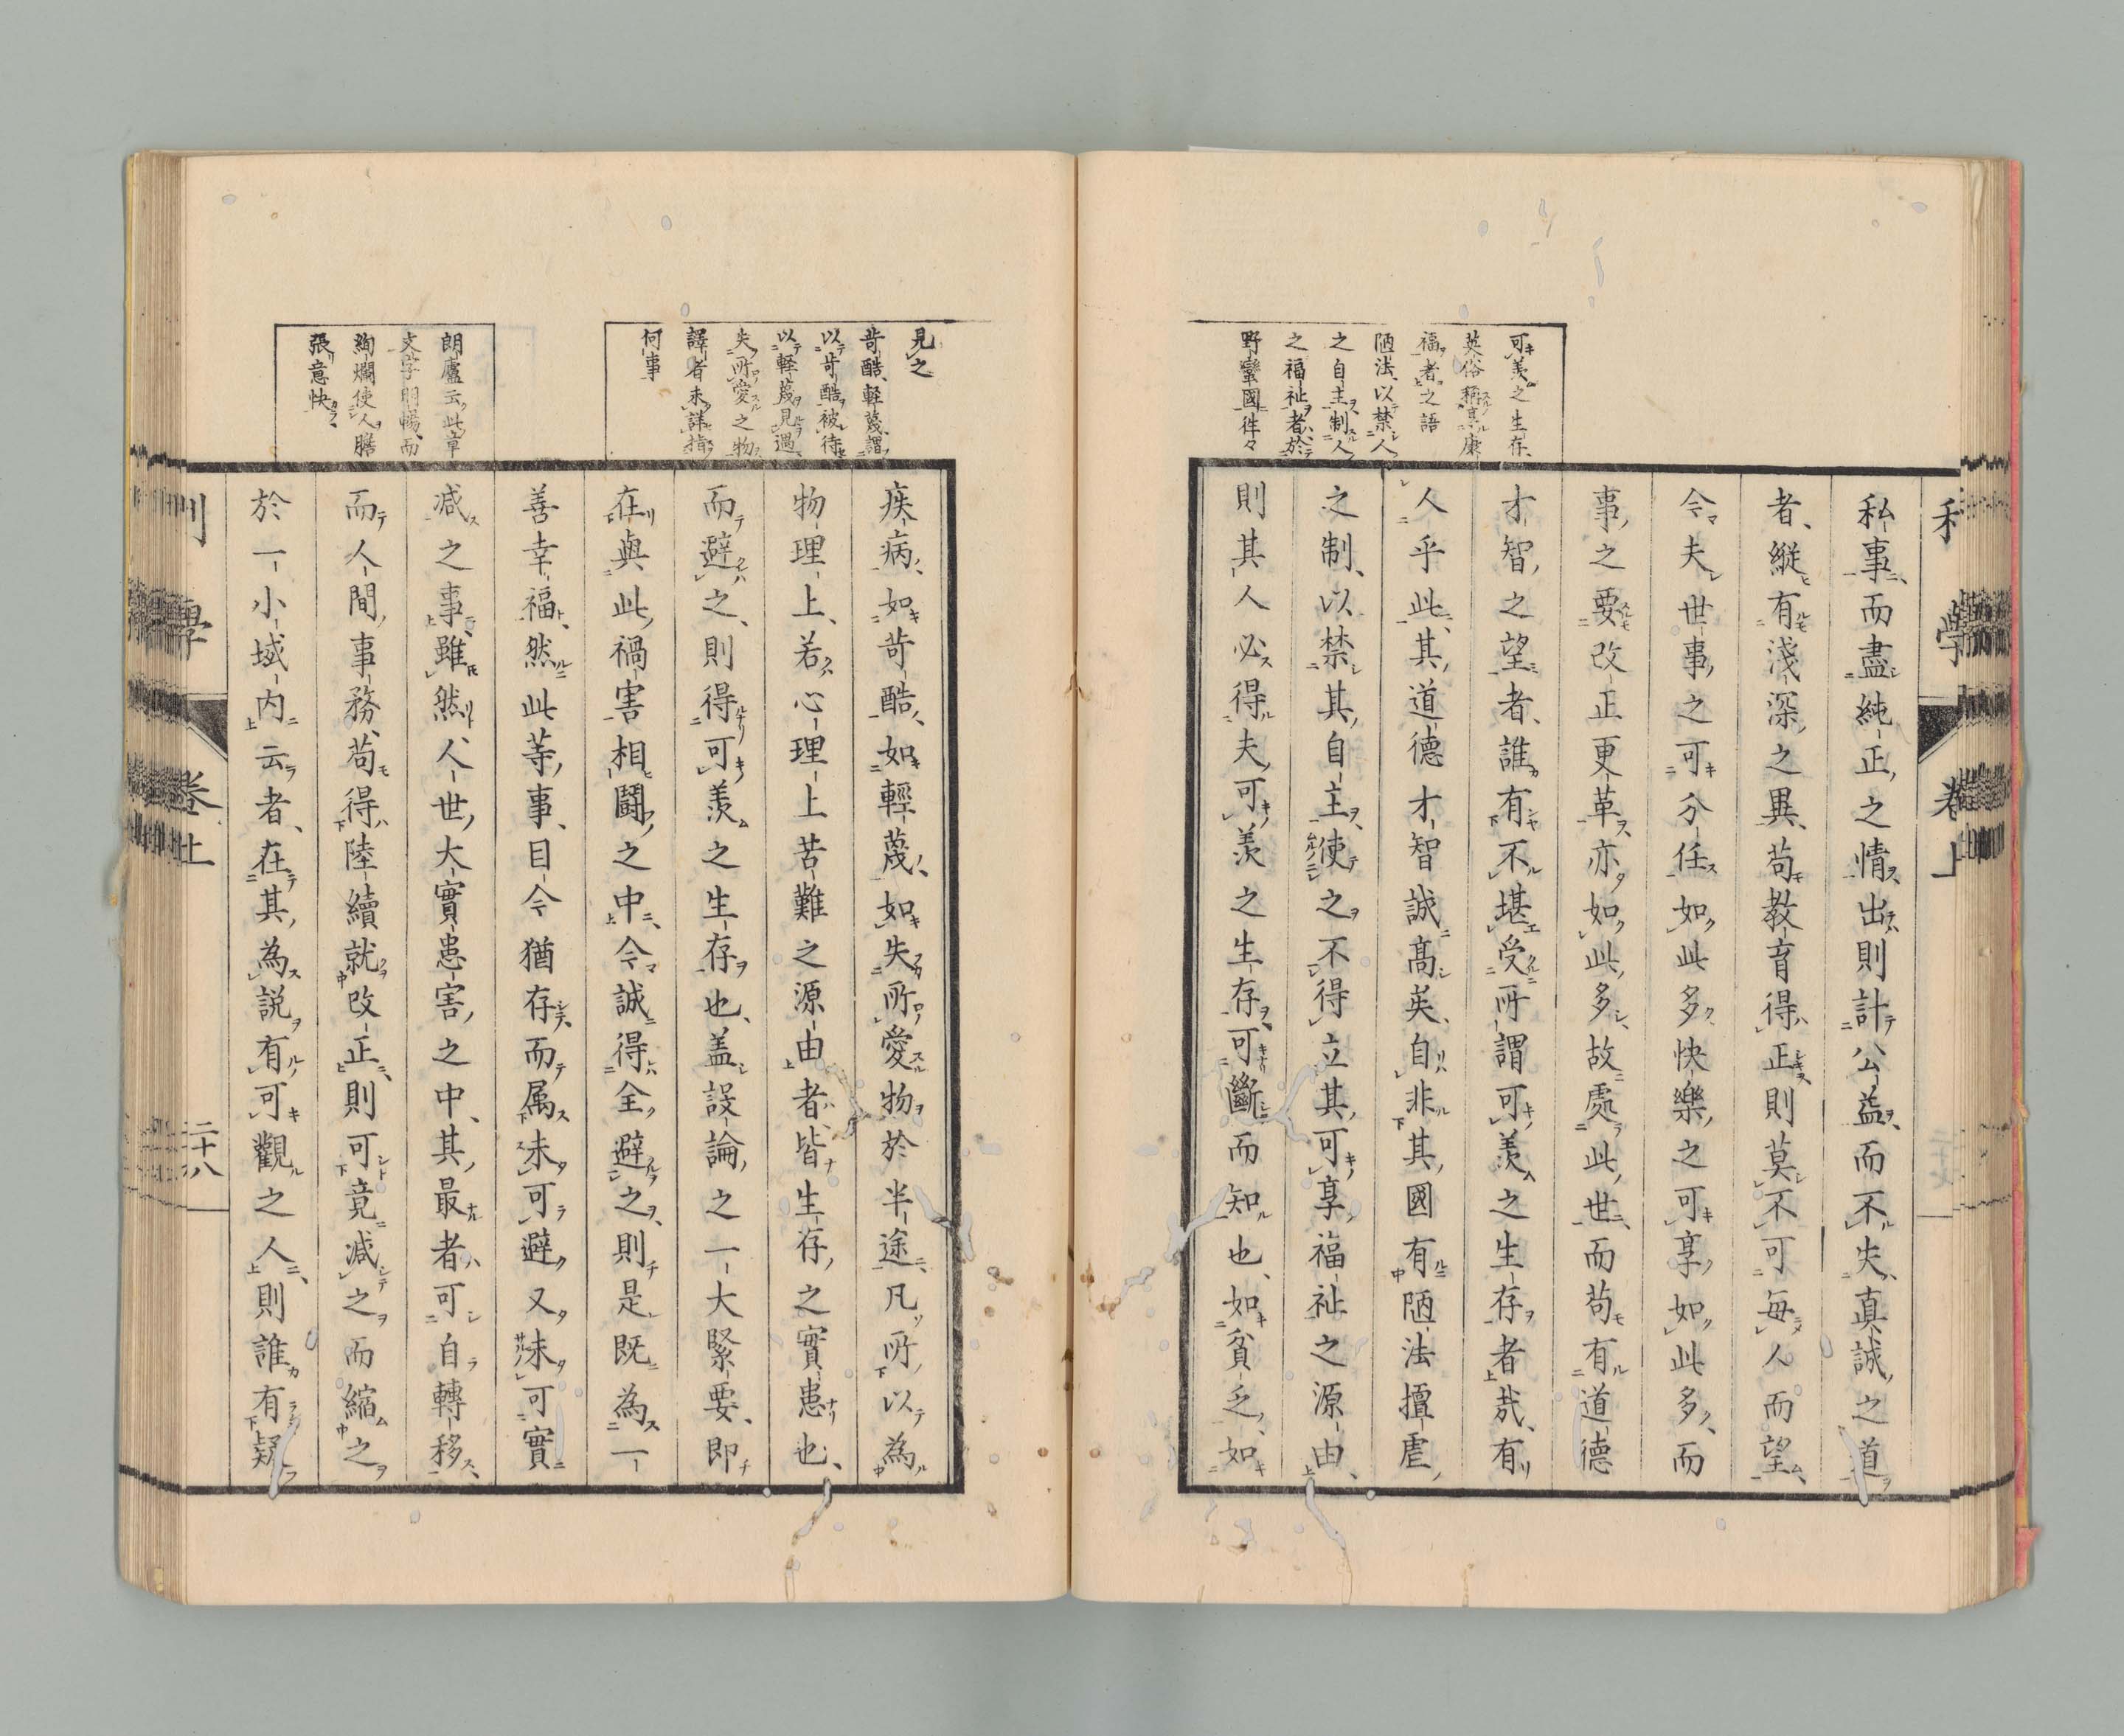 可羨之生存、
英俗稱享康
福者之語
陋法、以禁人
之自主制人
之福祉者、於
野蠻國徃々
利學 卷上
私事、而盡純正之情、出則計公益、而不失真誠之道
者、縦有淺深之異、苟教育得正則莫不可毎人而望、
今夫世事之可分任如此多快樂之可享如此多、而
事之要改正更革、亦如此多、故處此世、而苟有道德
才智之望者、誰有不堪受所謂可羨之生存者哉、有
人乎此、其道德才智誠髙矣、自非其國有陋法擅虐
之制、以禁其自主、使之不得立其可享福祉之源由、
則其人必得夫可羨之生存、可斷而知也、如貧乏、如
見之
苛酷、輕蔑、謂
以苛酷被待
以輕蔑見遇
失所愛之物
譯者未詳指
何事
朗廬云、此章
文字明暢、而
絢爛使人膽
張意快
疾病、如苛酷、如輕蔑、如失所愛物於半途、凡所以為
物理上、若心理上苦難之源由者、皆生存之實患也、
而避之、則得可羨之生存也、盖設論之一大緊要、即
在與此禍害相鬪之中、今誠得全避之、則是既為一
善幸福、然此等事、目今猶存、而属未可避、又未可實
减之事、雖然、人世大實患害之中、其最者可自轉移、
而人間事務、苟得陸續就改正、則可竟减之而縮之
於一小域内云者、在其為説有可觀之人、則誰有疑
利學 卷上 二十八